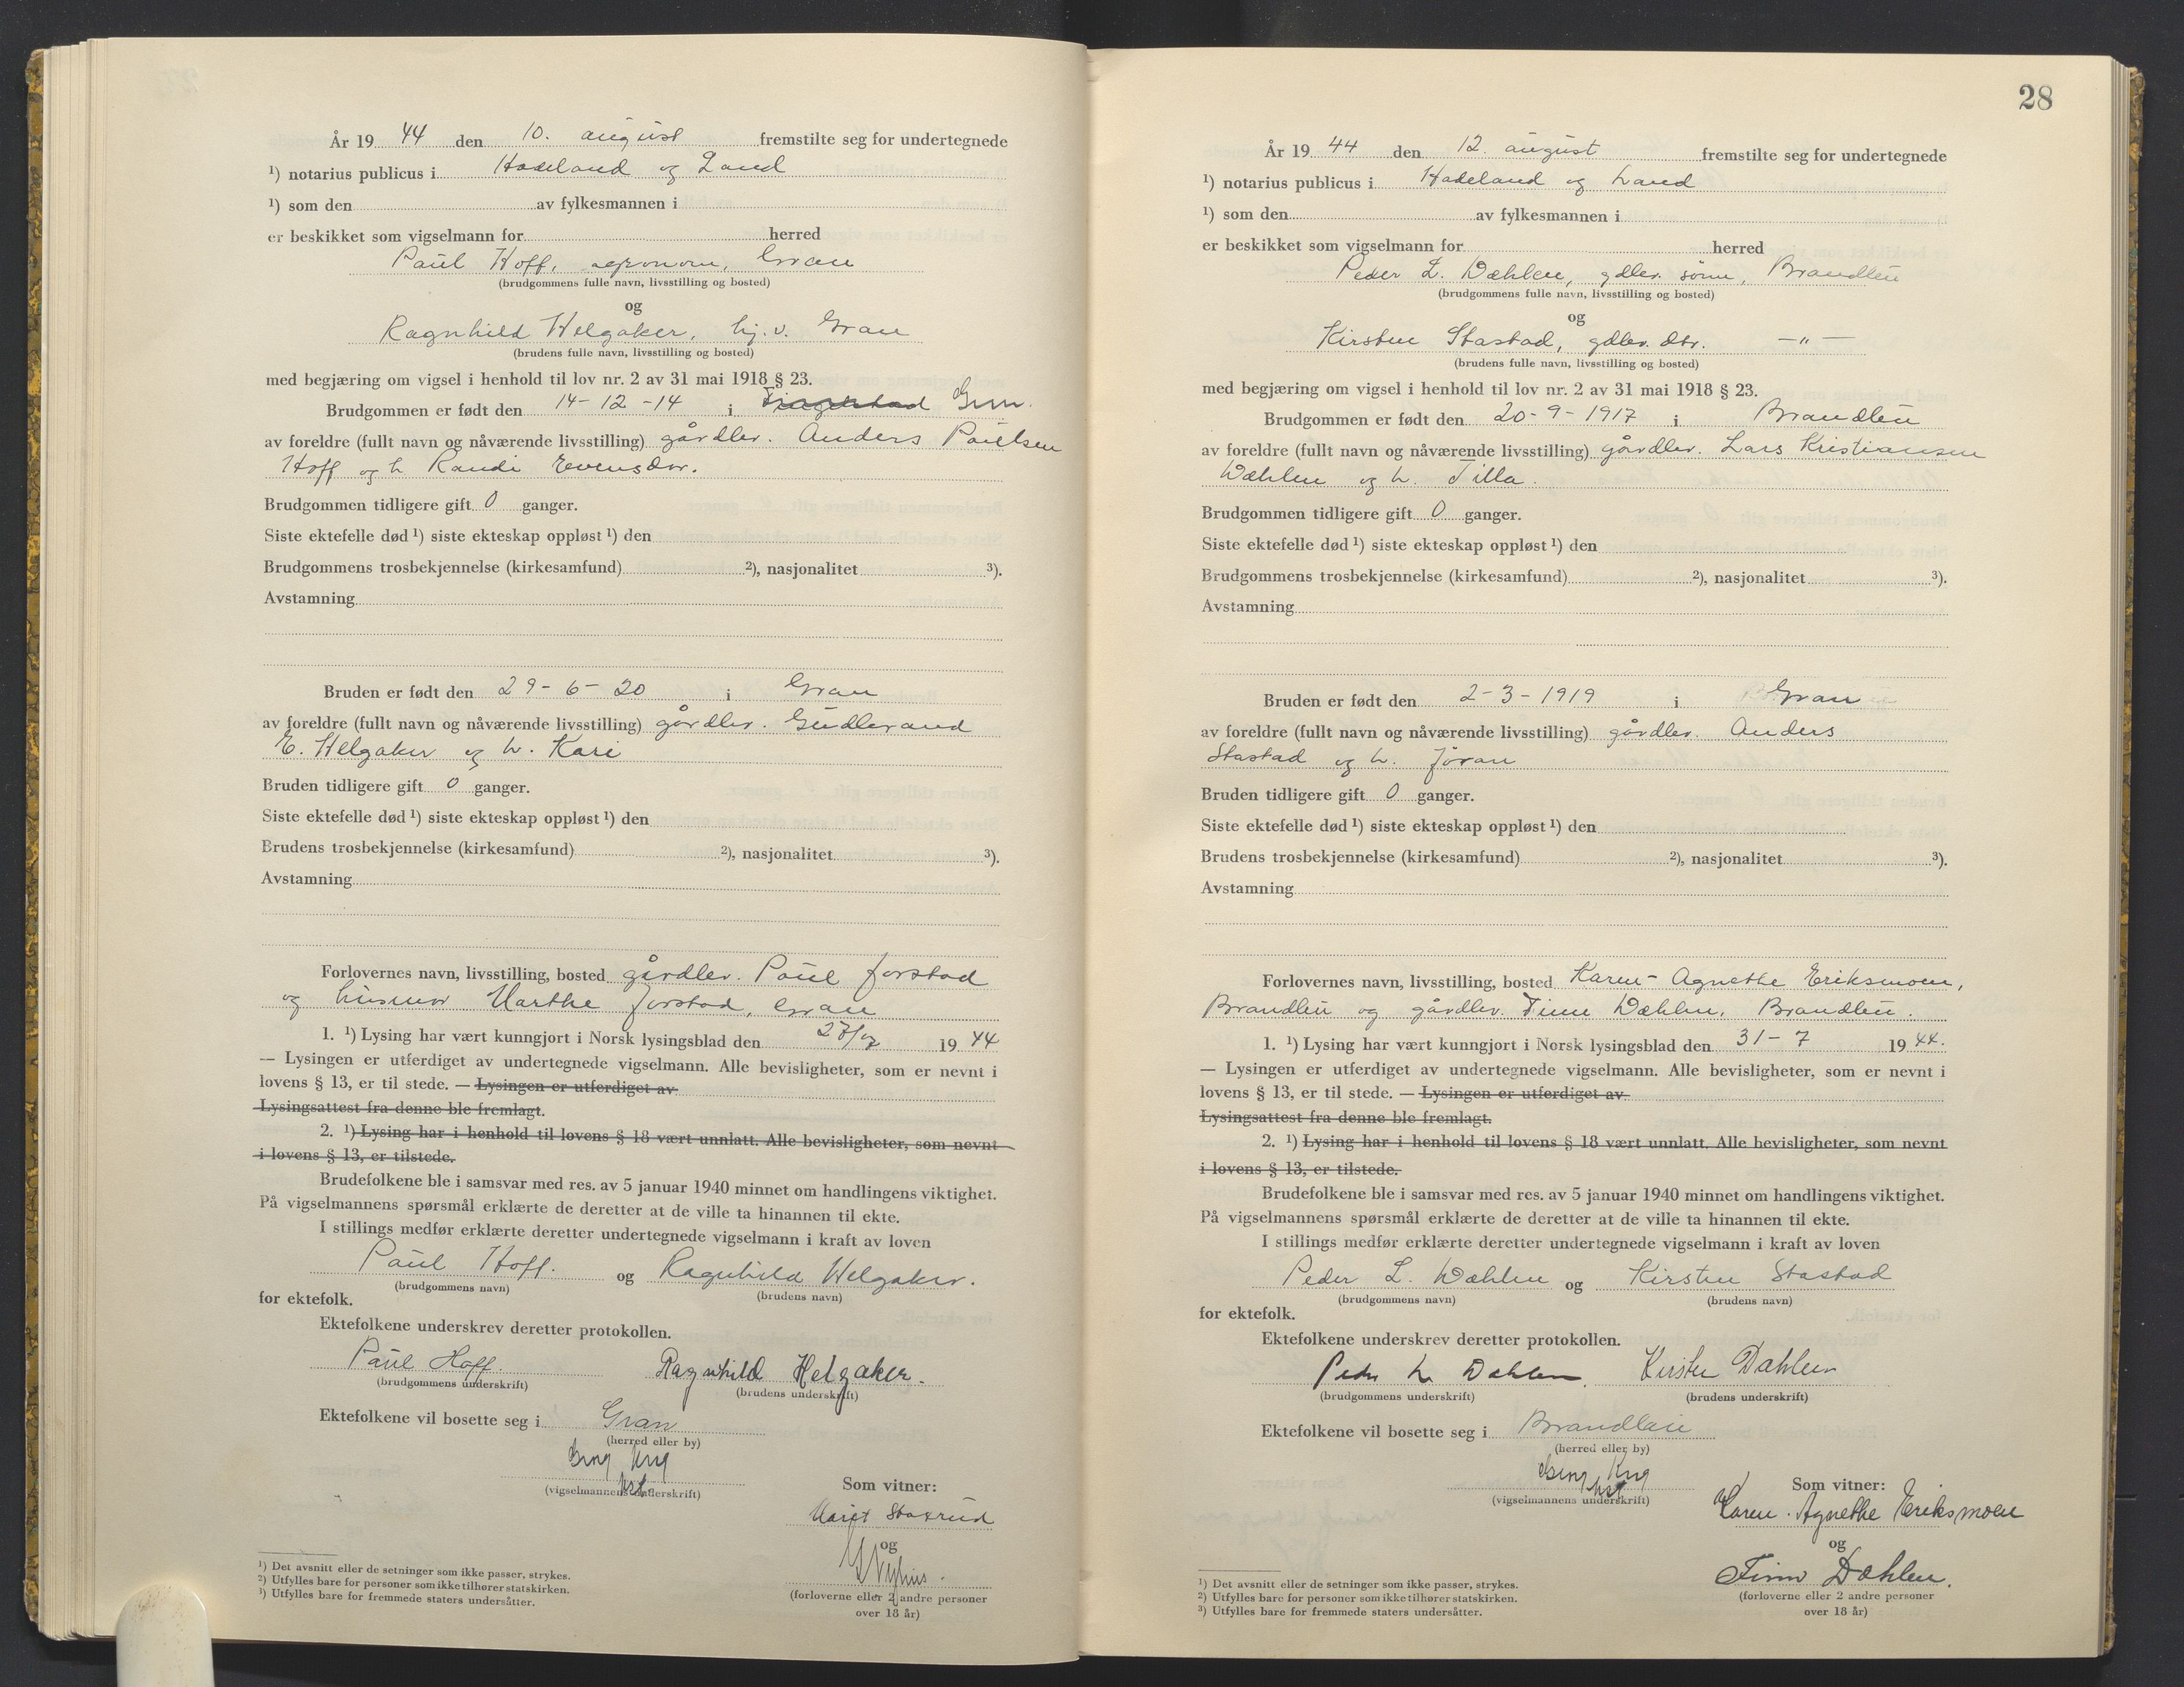 År 19 44 den 10. august fremstilte seg for undertegnede
¹) notarius publicus i Hadeland og Land
¹) som den av fylkesmannen i
er beskikket som vigselmann for herred
Paul Hoff, agronom, Gran
(brudgommens fulle navn, livsstilling og bosted)
og
Ragnhild Helgaker, hj. v. Gran
(brudens fulle navn, livsstilling og bosted)
med begjæring om vigsel i henhold til lov nr. 2 av 31 mai 1918 § 23.
Brudgommen er født den 14-12-14 i Gran.
av foreldre (fullt navn og nåværende livsstilling) gårdbr. Anders Paulsen
Hoff og h. Randi Evensdtr.
Brudgommen tidligere gift 0 ganger.
Siste ektefelle død ¹) siste ekteskap oppløst ¹) den
Brudgommens trosbekjennelse (kirkesamfund) ²), nasjonalitet ³).
Avstamning
Bruden er født den 29-6-20 i Gran
av foreldre (fullt navn og nåværende livsstilling) gårdbr. Gudbrand
E. Helgaker og h. Kari
Bruden tidligere gift 0 ganger.
Siste ektefelle død ¹) siste ekteskap oppløst ¹) den
Brudens trosbekjennelse (kirkesamfund) ²), nasjonalitet ³).
Avstamning
Forlovernes navn, livsstilling, bosted gårdbr. Paul Jorstad
og husmor Marthe Jorstad, Gran
1. ¹) Lysing har vært kunngjort i Norsk lysingsblad den 27/07 19 44
— Lysingen er utferdiget av undertegnede vigselmann. Alle bevisligheter, som er nevnt i
lovens § 13, er til stede. — Lysingen er utferdiget av
Lysingsattest fra denne ble fremlagt.
2. ¹) Lysing har i henhold til lovens § 18 vært unnlatt. Alle bevisligheter, som nevnt
i lovens § 13, er tilstede.
Brudefolkene ble i samsvar med res. av 5 januar 1940 minnet om handlingens viktighet.
På vigselmannens spørsmål erklærte de deretter at de ville ta hinannen til ekte.
I stillings medfør erklærte deretter undertegnede vigselmann i kraft av loven
Paul Hoff. og Ragnhild Helgaker.
(brudgommens navn) (brudens navn)
for ektefolk.
Ektefolkene underskrev deretter protokollen.
Paul Hoff. Ragnhild Helgaker.
(brudgommens underskrift) (brudens underskrift)
Ektefolkene vil bosette seg i Gran
(herred eller by)
(vigselmannens underskrift)
Som vitner:
Marit Staxrud
og
(forloverne eller 2 andre personer
over 18 år)
¹) Det avsnitt eller de setninger som ikke passer, strykes.
²) Utfylles bare for personer som ikke tilhører statskirken.
³) Utfylles bare for fremmede staters undersåtter.
28
År 19 44 den 12. august fremstilte seg for undertegnede
¹) notarius publicus i Hadeland og Land
¹) som den av fylkesmannen i
er beskikket som vigselmann for herred
Peder L. Dæhlen, gdbr. sønn, Brandbu
(brudgommens fulle navn, livsstilling og bosted)
og
Kirsten Stastad, gdbr. dtr. —"—
(brudens fulle navn, livsstilling og bosted)
med begjæring om vigsel i henhold til lov nr. 2 av 31 mai 1918 § 23.
Brudgommen er født den 20-9-1917 i Brandbu
av foreldre (fullt navn og nåværende livsstilling) gårdbr. Lars Kristiansen
Dæhlen og h. Tilla.
Brudgommen tidligere gift 0 ganger.
Siste ektefelle død ¹) siste ekteskap oppløst ¹) den
Brudgommens trosbekjennelse (kirkesamfund) ²), nasjonalitet ³).
Avstamning
Bruden er født den 2-3-1919 i Gran
av foreldre (fullt navn og nåværende livsstilling) gårdbr. Anders
Stastad og h. Jøran
Bruden tidligere gift 0 ganger.
Siste ektefelle død ¹) siste ekteskap oppløst ¹) den
Brudens trosbekjennelse (kirkesamfund) ²), nasjonalitet ³).
Avstamning
Forlovernes navn, livsstilling, bosted Karen-Agnethe Eriksmoen,
Brandbu og gårdbr. Finn Dæhlen, Brandbu.
1. ¹) Lysing har vært kunngjort i Norsk lysingsblad den 31-7 19 44.
— Lysingen er utferdiget av undertegnede vigselmann. Alle bevisligheter, som er nevnt i
lovens § 13, er til stede. — Lysingen er utferdiget av
Lysingsattest fra denne ble fremlagt.
2. ¹) Lysing har i henhold til lovens § 18 vært unnlatt. Alle bevisligheter, som nevnt
i lovens § 13, er tilstede.
Brudefolkene ble i samsvar med res. av 5 januar 1940 minnet om handlingens viktighet.
På vigselmannens spørsmål erklærte de deretter at de ville ta hinannen til ekte.
I stillings medfør erklærte deretter undertegnede vigselmann i kraft av loven
Peder L. Dæhlen og Kirsten Stastad
(brudgommens navn) (brudens navn)
for ektefolk.
Ektefolkene underskrev deretter protokollen.
Peder L Dæhlen. Kirsten Dæhlen
(brudgommens underskrift) (brudens underskrift)
Ektefolkene vil bosette seg i Brandbu
(herred eller by)
(vigselmannens underskrift)
Som vitner:
Karen-Agnethe Eriksmoen
og
Finn Dæhlen.
(forloverne eller 2 andre personer
over 18 år)
¹) Det avsnitt eller de setninger som ikke passer, strykes.
²) Utfylles bare for personer som ikke tilhører statskirken.
³) Utfylles bare for fremmede staters undersåtter.